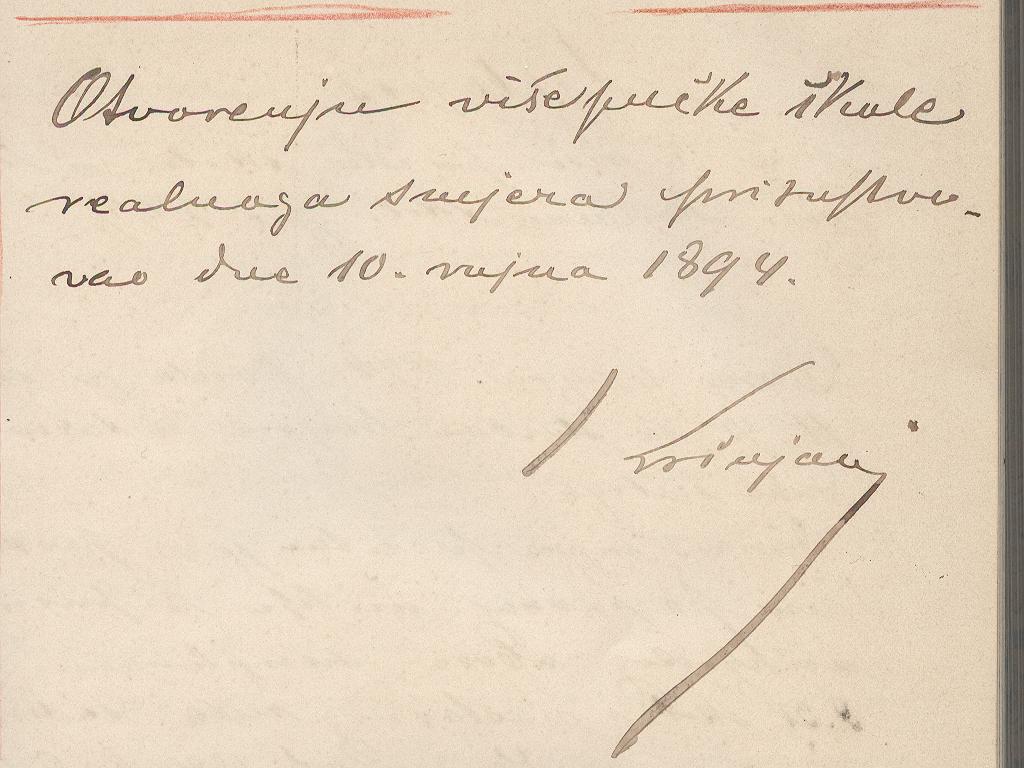 Otvorenju višepučke škole
realnoga smjera prisustvo-
vao dne 10. rujna 1894.
Kršnjavi